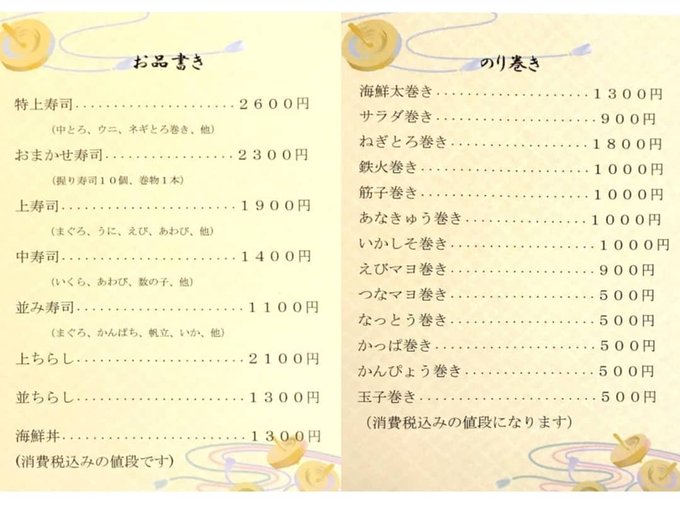 お品書き
特上寿司....................２６００円
（中とろ、ウニ、ネギとろ巻き、他）
おまかせ寿司................２３００円
（握り寿司１０個、巻物１本）
上寿司......................１９００円
（まぐろ、うに、えび、あわび、他）
中寿司......................１４００円
（いくら、あわび、数の子、他）
並み寿司....................１１００円
（まぐろ、かんぱち、帆立、いか、他）
上ちらし....................２１００円
並ちらし....................１３００円
海鮮丼......................１３００円
(消費税込みの値段です)
のり巻き
海鮮太巻き..................１３００円
サラダ巻き..................９００円
ねぎとろ巻き................１８００円
鉄火巻き....................１０００円
筋子巻き....................１０００円
あなきゅう巻き..............１０００円
いかしそ巻き................１０００円
えびマヨ巻き................９００円
つなマヨ巻き................５００円
なっとう巻き................５００円
かっぱ巻き..................５００円
かんぴょう巻き..............５００円
玉子巻き....................５００円
（消費税込みの値段になります）